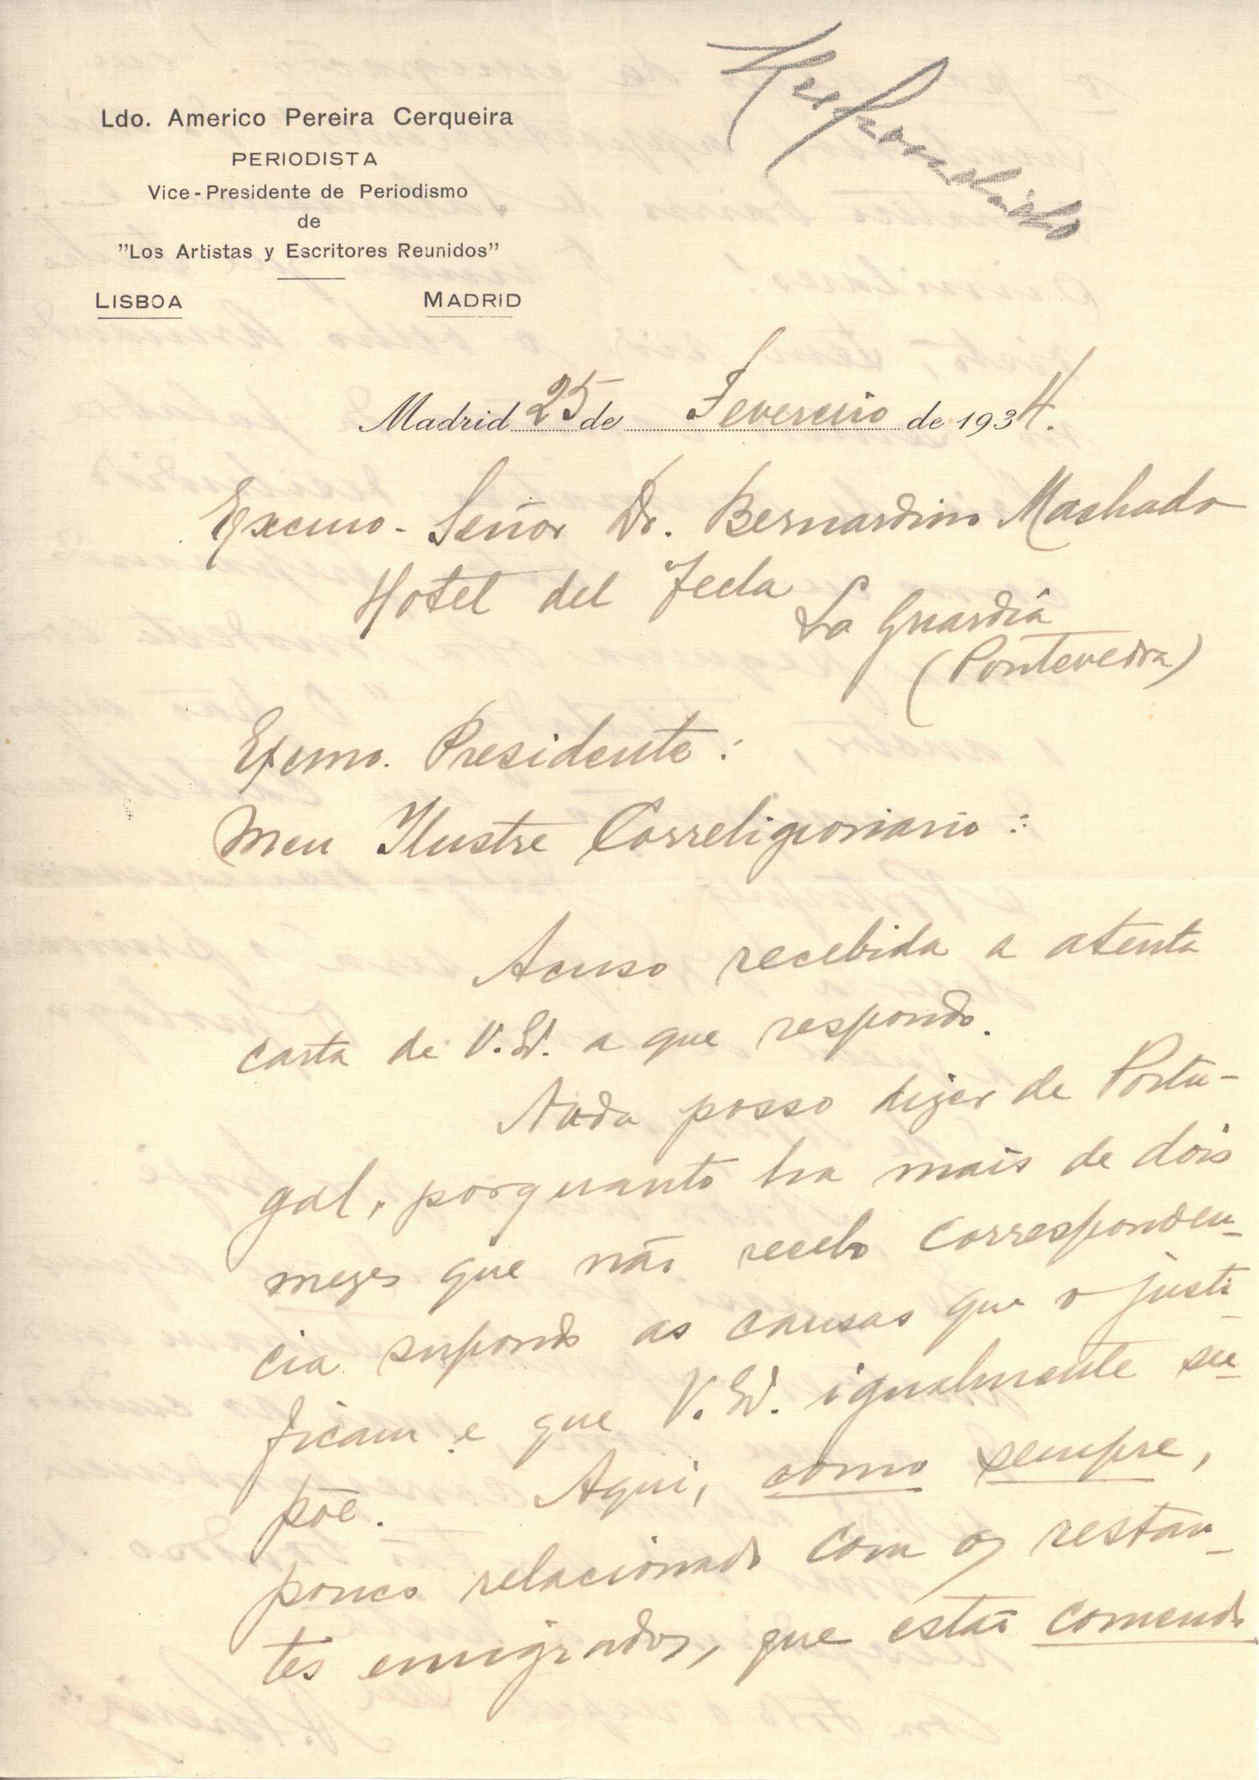 Respondido
Ldo. Americo Pereira Cerqueira
PERIODISTA
Vice-Presidente de Periodismo
de
"Los Artistas y Escritores Reunidos"
LISBOA MADRID
Madrid 25 de Fevereiro de 1934.
Excmo. Señor Dr. Bernardino Machado
Hotel del Tecla
La Guardia
(Pontevedra)
Exmo. Presidente:
Meu Ilustre Correligionario:
Acuso recebida a atenta
carta de V. Ex. a que respondo.
Nada posso dizer de Portu-
gal, porquanto ha mais de dois
mezes que não recebo corresponden-
cia supondo as causas que o justi-
ficam e que V. Ex. igualmente su-
põe. Aqui, como sempre,
pouco relacionado com os restan-
tes emigrados, que estão comendo